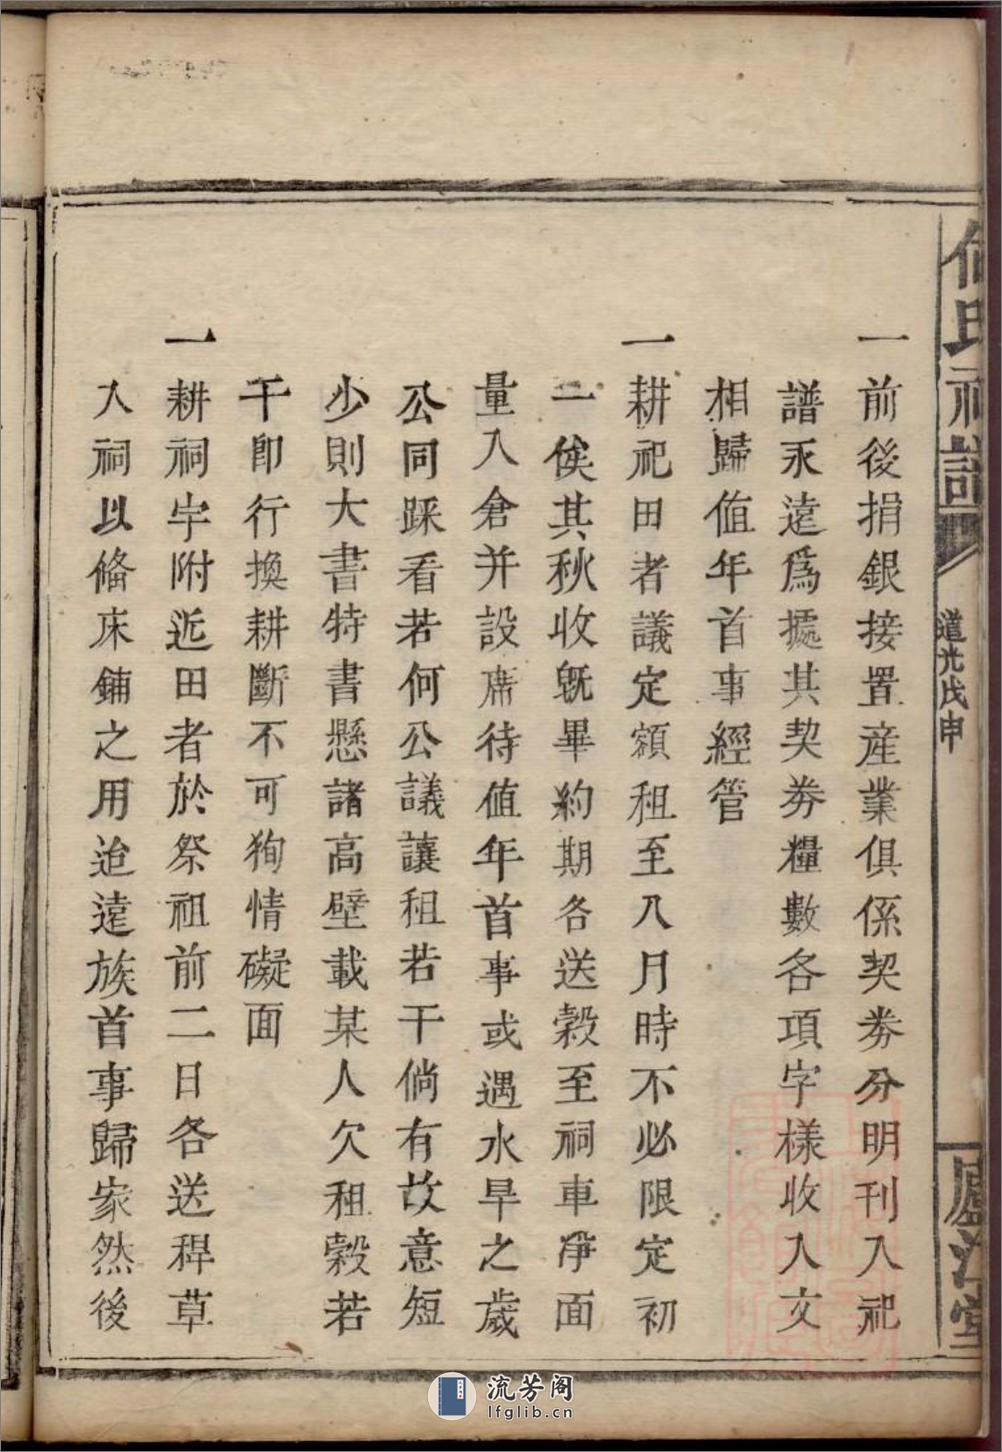 何氏祀譜
道光戊申
廬江堂
一前後捐銀接置産業俱係契券分明刊入祀
譜永遠爲㨿其契券糧數各項字樣收入文
相歸值年首事經管
一耕祀田者議定額租至八月時不必限定初
一俟其秋收旣畢約期各送穀至祠車凈面
量入倉并設席待值年首事或遇水旱之歲
公同踩看若何公議讓租若干倘有故意短
少則大書特書懸諸高壁載某人欠租穀若
干即行換耕斷不可狥情礙面
一耕祠宇附近田者於祭祖前二日各送稈草
入祠以俻床鋪之用迨遠族首事歸家然後
流芳阁
lfglib.cn